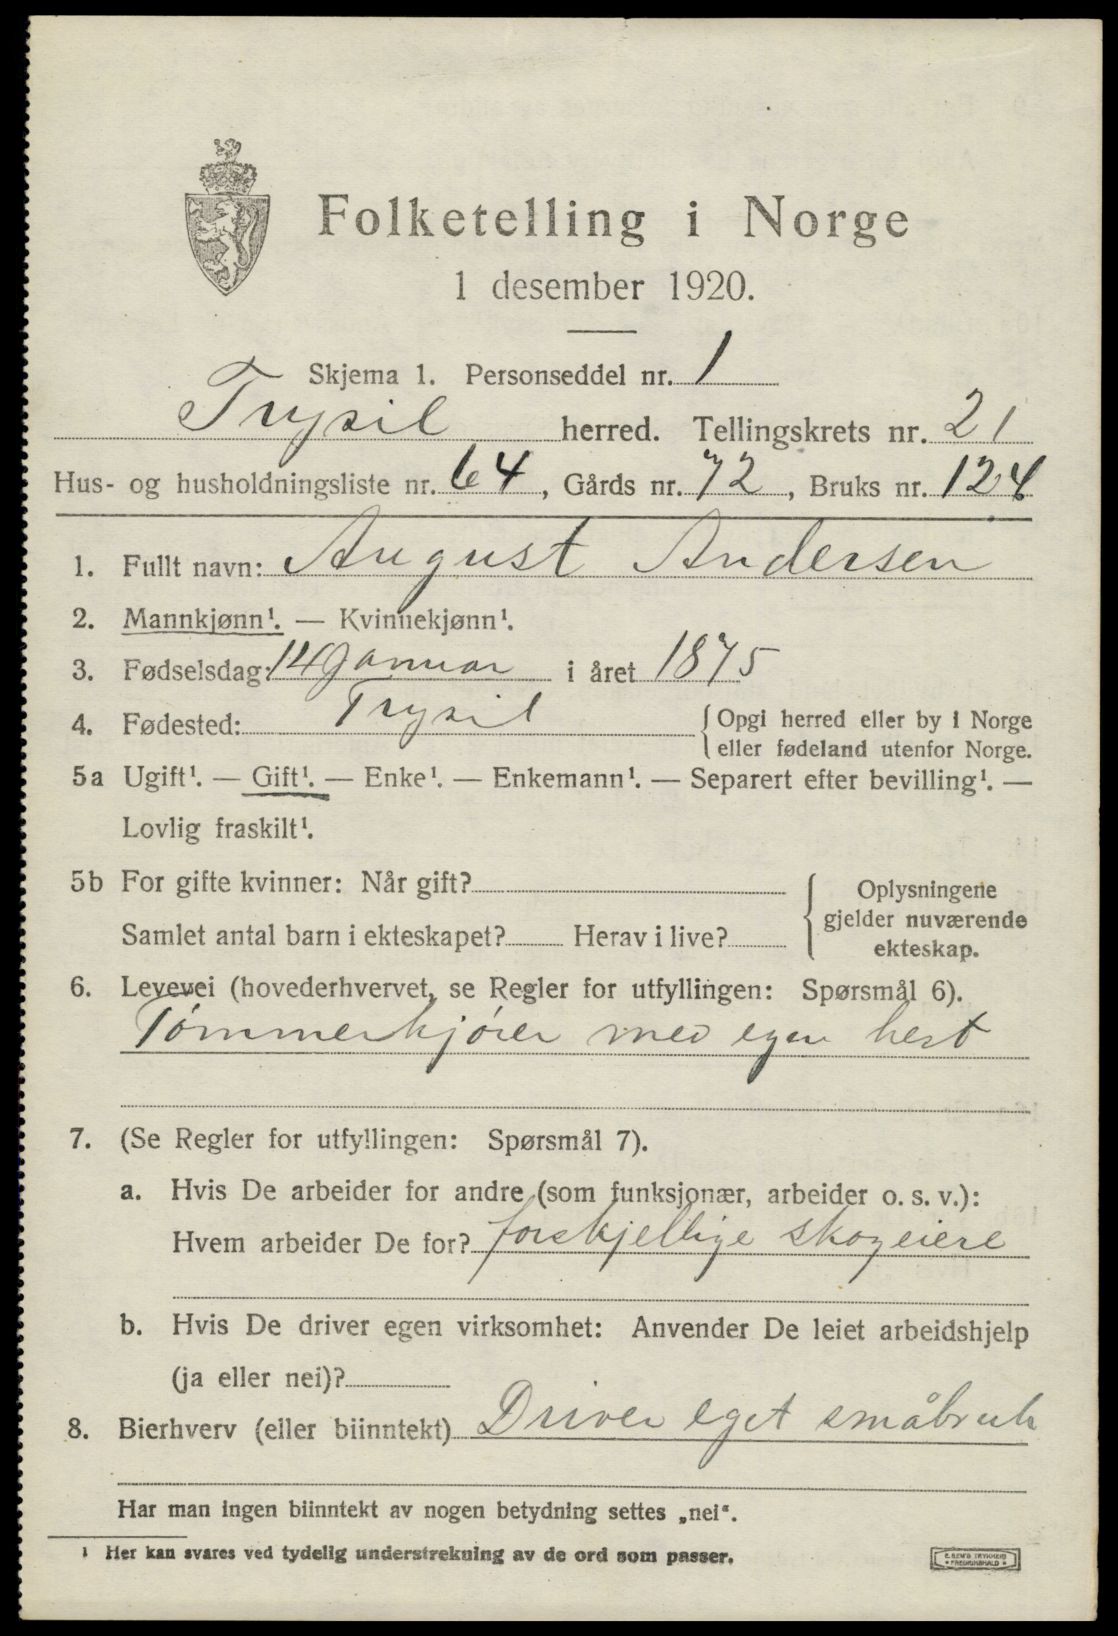 Folketelling i Norge
1 desember 1920.
Skjema 1. Personseddel nr. 1
Trysil herred. Tellingskrets nr. 21
Hus- og husholdningsliste nr. 64, Gårds nr. 72, Bruks nr. 124
1. Fullt navn: August Andersen
2. Mannkjønn¹. — Kvinnekjønn¹.
3. Fødselsdag: 14 Januar i året 1875
4. Fødested: Trysil {Opgi herred eller by i Norge
eller fødeland utenfor Norge.
5a Ugift¹. — Gift¹. — Enke¹. — Enkemann¹. — Separert efter bevilling¹. —
Lovlig fraskilt¹.
5b For gifte kvinner: Når gift?
Samlet antal barn i ekteskapet? Herav i live?
{ Oplysningene
gjelder nuværende
ekteskap.
6. Levevei (hovederhvervet, se Regler for utfyllingen: Spørsmål 6).
Tømmerkjører med egen hest
7. (Se Regler for utfyllingen: Spørsmål 7).
a. Hvis De arbeider for andre (som funksjonær, arbeider o. s. v.):
Hvem arbeider De for? forskjellige skogeiere
b. Hvis De driver egen virksomhet: Anvender De leiet arbeidshjelp
(ja eller nei)?
8. Bierhverv (eller biinntekt) Driver eget småbruk
Har man ingen biinntekt av nogen betydning settes „nei“.
¹ Her kan svares ved tydelig understrekning av de ord som passer.
E. SEM'S TRYKKERI
• FREDRIKSHALD •